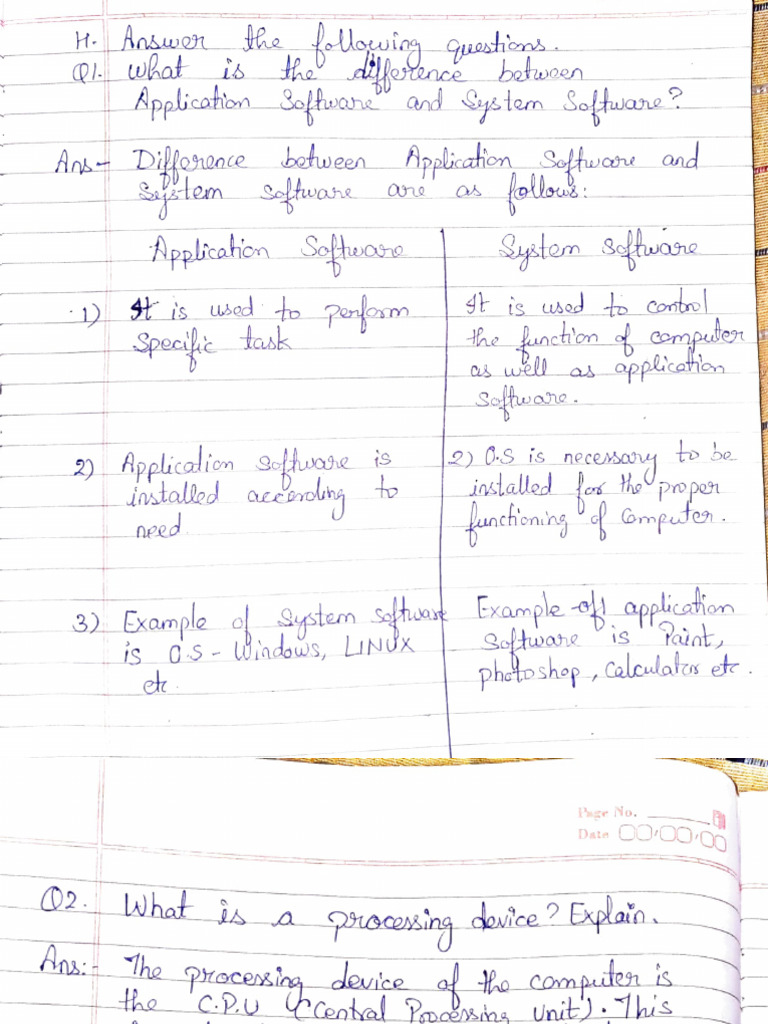 H. Answer the following questions.
Q1. What is the difference between
Application Software and System Software?
Ans- Difference between Application Software and
System software are as follows:
Application Software
1) It is used to perform
Specific task
2) Application software is
installed according to
need
3) Example of System software
is O.S - Windows, LINUX
etc
System Software
It is used to control
the function of computer
as well as application
Software.
2) O.S is necessary to be
installed for the proper
functioning of Computer.
Example of application
Software is Paint,
photoshop, Calculator etc.
Page No.
Date
Q2. What is a processing device? Explain.
Ans:- The processing device of the computer is
the C.P.U (Central Processing unit). This